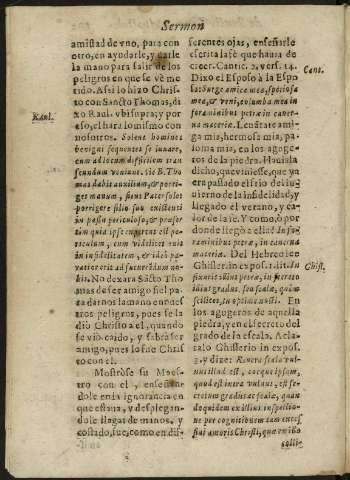 Sermon
amistad de vno, para con
otro, en ayudarle, y darle
la mano para salir de los
peligros en que se vè me
tido. Assi lo hizo Chris-
to con Sancto Thomas, di-
xo Raul. vbi supra; y por
Raul.
esso, el hara lo mismo con
nosotros. Solent homines
benigni sequentes se iuuare,
cum ad locum difficilem tran
seundum veniunt. sic B. Tho
mas dabit auxilium, & porri-
get manum, sicut Pater solet
porrigere filio suo existenti
in passu periculoso, & præser
tim quia ipse expertus est pe-
riculum, cum videlicet ruit
in infidelitatem, & ideò pa-
ratior erit ad succurrendum no-
bis. No dexara Sácto Tho
mas de ser amigo fiel pa-
ra darnos la mano en nues
tros peligros, pues se la
diò Christo a el, quando
se vió caido, y sabrà ser
amigo, pues lo fue Chris
to con el.
Mostròse su Maes
tro con el, enseñan-
dole en la ignorancia en
que estaua, y desplegan-
dole llagas de manos, y
costado, fue, como en dif-
ferentes ojas, enseñarle
escrita la fè que hauia de
creer. Cantic. 2. vers. 14.
Cant.
Dixo el Esposo à la Espo
sa: Surge amica mea, speciosa
mea, & veni, columba mea in
foraminibus petræ in cauer-
na maceriæ. Leuátate ami-
ga mia, hermosa mia, pa-
loma mia, en los aguge-
ros de la piedra. Hauiala
dicho, que viniesse, que ya
era passado el frio de in-
uierno de la infidelidad, y
llegado el verano, y ca-
lor de la fe. Y como, ò por
donde llegò a ella? In fo-
raminibus petræ, in cauerna
maceriæ. Del Hebreo lee
Ghisler. in exposit. lit. In
Ghisl.
scissuris illius petræ, in secreto
illius gradus, seu scalæ, quam
scilicet, tu optime nosti. En
los agugeros de aquella
piedra, y en el secreto del
grado de la escala. Acla-
ralo Ghislerio in expos.
2. y dize: Reuera scala vul-
nus illud est, eoque ipsum,
quod est intra vulnus, est se-
cretum gradus ac scalæ, quan
doquidem ex illius inspectio-
ne per cognitionem tam excel
sui amoris Christi, quæ in illo
colli-